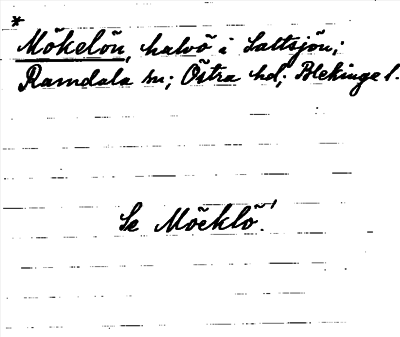 *
Mökelön, halvö i Saltsjön;
Ramdala sn; Östra hd; Blekinge l.
Se Möcklö!